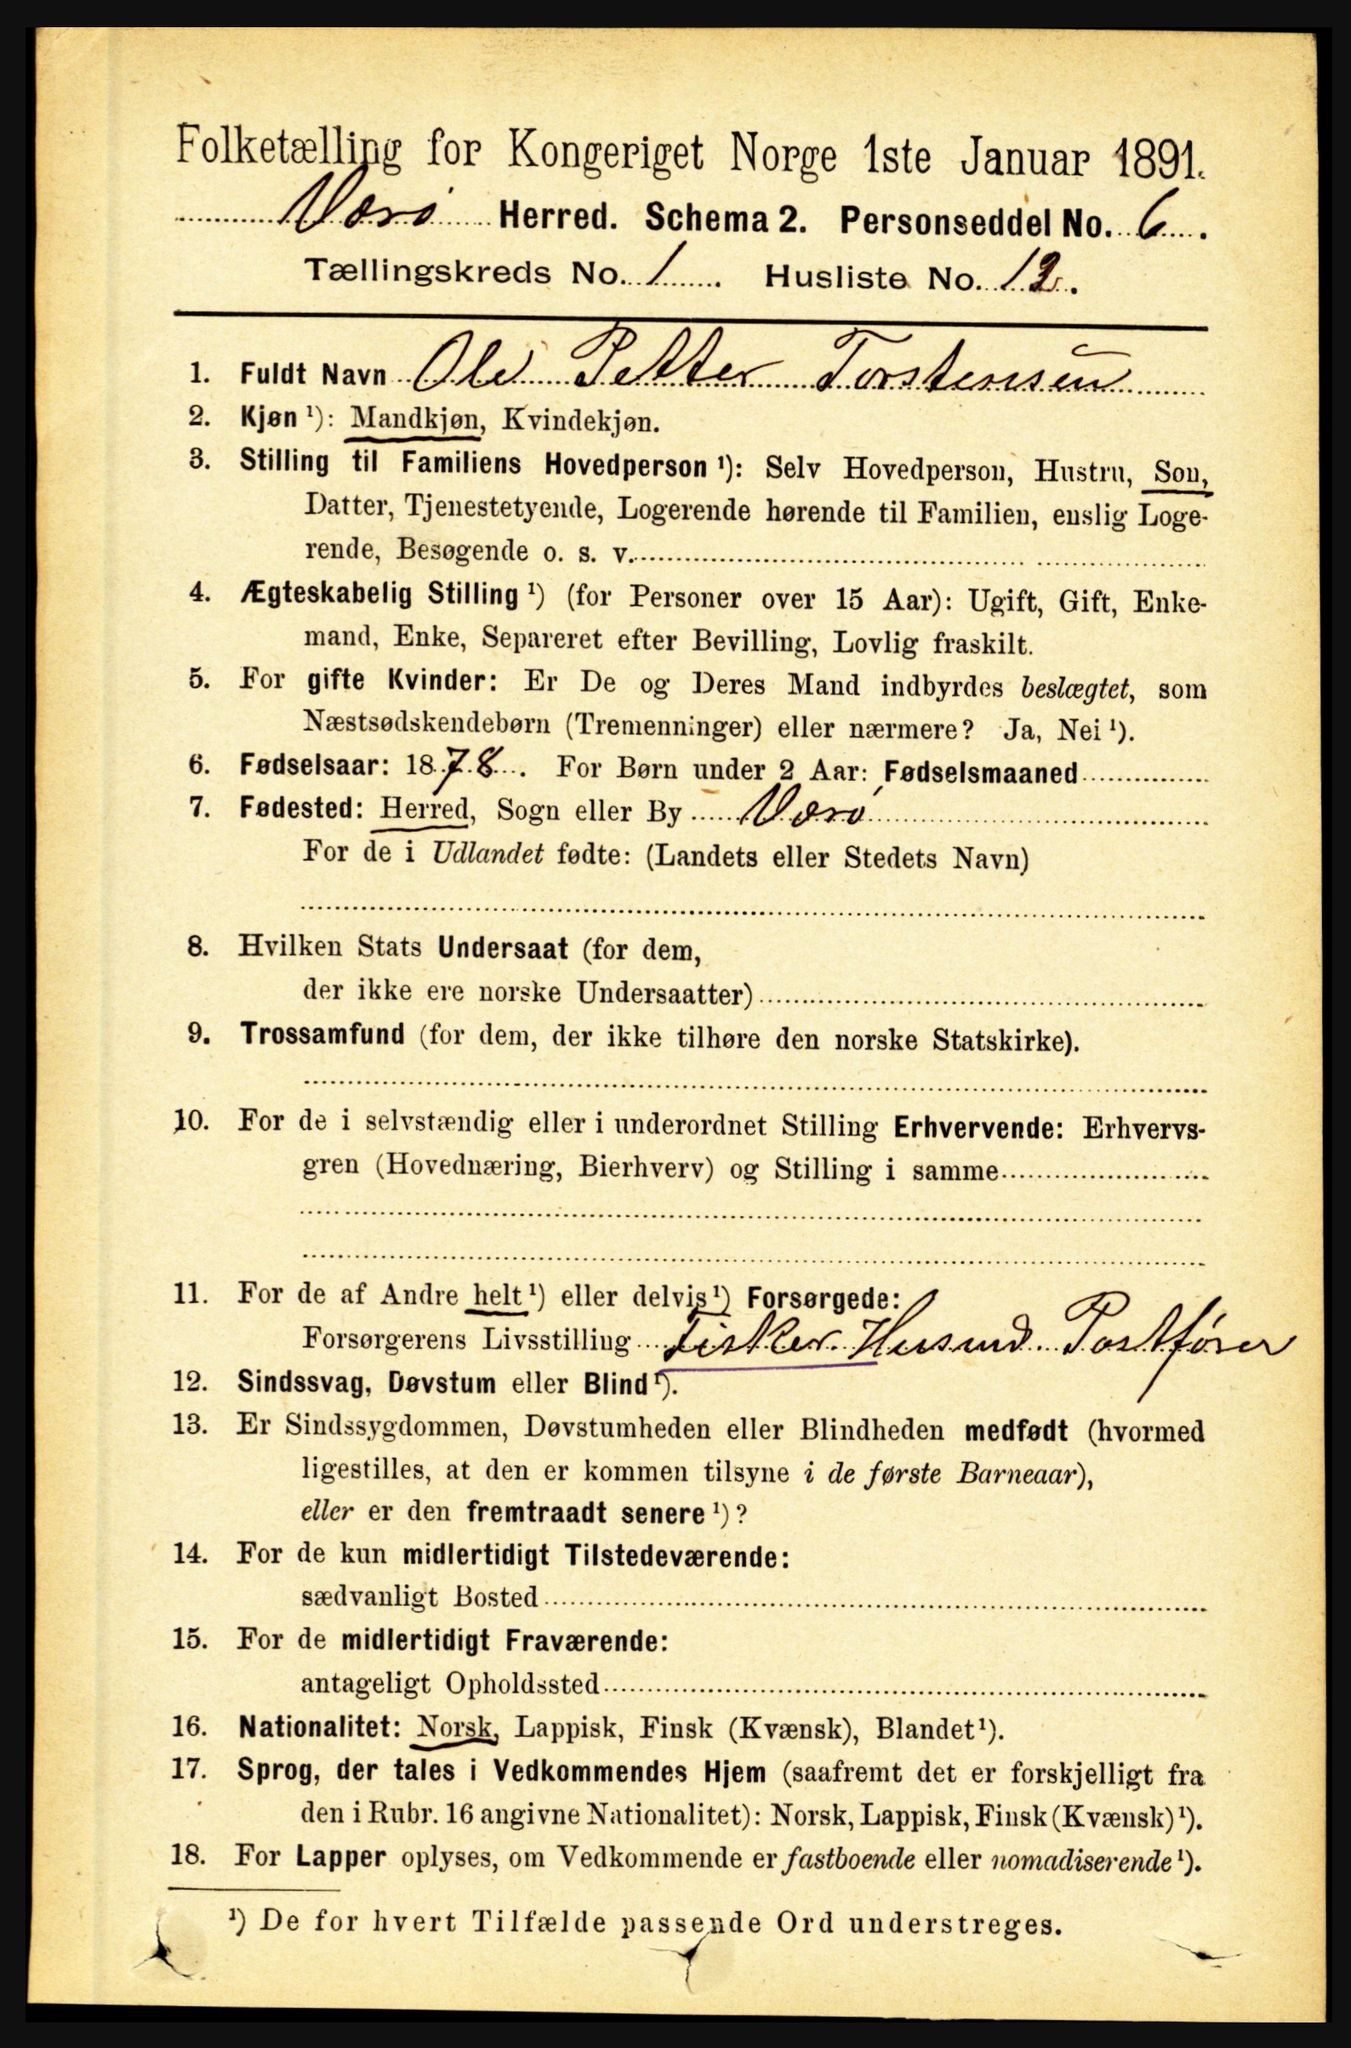 Folketælling for Kongeriget Norge 1ste Januar 1891.
Værø Herred. Schema 2. Personseddel No. 6.
Tællingskreds No. 1. Husliste No. 12.
1. Fuldt Navn Ole Petter Torstensen
2. Kjøn ¹): Mandkjøn, Kvindekjøn.
3. Stilling til Familiens Hovedperson ¹): Selv Hovedperson, Hustru, Son,
Datter, Tjenestetyende, Logerende hørende til Familien, enslig Loge-
rende, Besøgende o. s. v.
4. Ægteskabelig Stilling ¹) (for Personer over 15 Aar): Ugift, Gift, Enke-
mand, Enke, Separeret efter Bevilling, Lovlig fraskilt.
5. For gifte Kvinder: Er De og Deres Mand indbyrdes beslægtet, som
Næstsødskendebørn (Tremenninger) eller nærmere? Ja, Nei ¹).
6. Fødselsaar: 1878. For Børn under 2 Aar: Fødselsmaaned
7. Fødested: Herred, Sogn eller By Værø
For de i Udlandet fødte: (Landets eller Stedets Navn)
8. Hvilken Stats Undersaat (for dem,
der ikke ere norske Undersaatter)
9. Trossamfund (for dem, der ikke tilhøre den norske Statskirke).
10. For de i selvstændig eller i underordnet Stilling Erhvervende: Erhvervs-
gren (Hovednæring, Bierhverv) og Stilling i samme
11. For de af Andre helt ¹) eller delvis ¹) Forsørgede:
Forsørgerens Livsstilling Fisker Husmd Postfører
12. Sindssvag, Døvstum eller Blind ¹).
13. Er Sindssygdommen, Døvstumheden eller Blindheden medfødt (hvormed
ligestilles, at den er kommen tilsyne i de første Barneaar),
eller er den fremtraadt senere ¹)?
14. For de kun midlertidigt Tilstedeværende:
sædvanligt Bosted
15. For de midlertidigt Fraværende:
antageligt Opholdssted
16. Nationalitet: Norsk, Lappisk, Finsk (Kvænsk), Blandet ¹).
17. Sprog, der tales i Vedkommendes Hjem (saafremt det er forskjelligt fra
den i Rubr. 16 angivne Nationalitet): Norsk, Lappisk, Finsk (Kvænsk) ¹).
18. For Lapper oplyses, om Vedkommende er fastboende eller nomadiserende ¹).
¹) De for hvert Tilfælde passende Ord understreges.